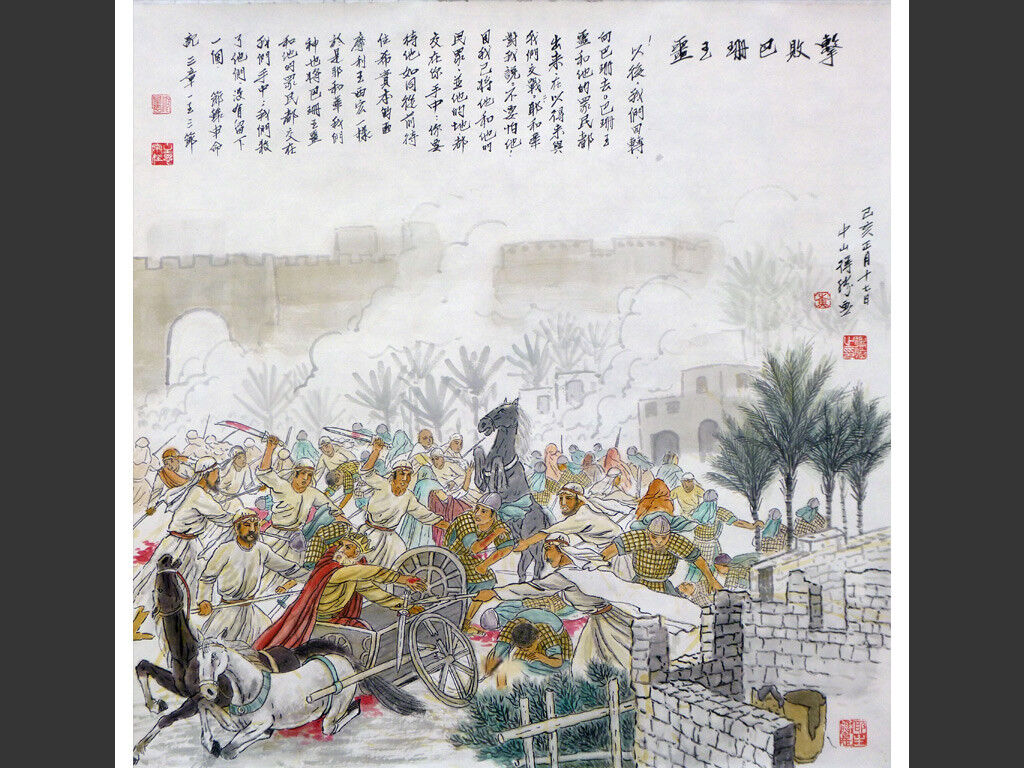 擊敗巴珊王噩
以後,我們回轉,
向巴珊去。巴珊王
噩和他的眾民都
出來,在以得來與
我們交戰。耶和華
對我說:不要怕他!
因我已將他和他的
民眾,並他的地都
交在你手中;你要
待他如同從前待
住希實本的亞
摩利王西宏一樣
於是耶和華我們
神也將巴珊王噩
和他的眾民都交在
我們手中;我們殺
了他們,沒有留下
一個 節錄申命
記三章一至三節
己亥正月十七日
中山得勝画